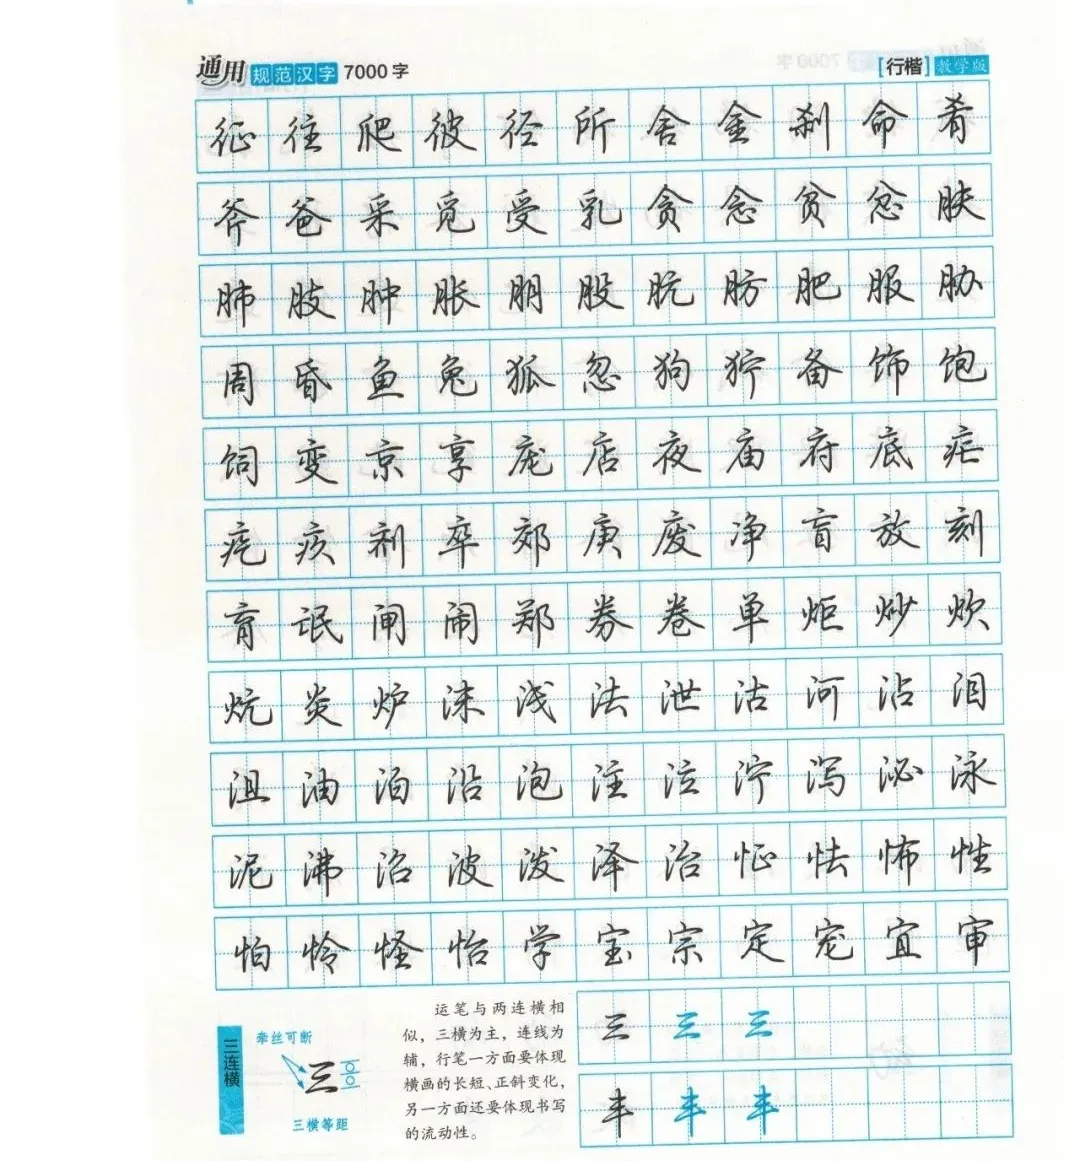 通用规范汉字7000字 [行楷]教学版
征往爬彼径所舍金刹命肴
斧爸采觅受乳贪念贫忿肤
肺肢肿胀朋股肮肪肥服胁
周昏鱼兔狐忽狗狞备饰饱
饲变京享庞店夜庙府底疟
疙疚剂卒郊庚废净盲放刻
育氓闸闹郑券卷单炬炒炊
炕炎炉沫浅法泄沽河沾泪
沮油泊沿泡注泣泞泻泌泳
泥沸沼波泼泽治怔怯怖性
怕怜怪怡学宝宗定宠宜审
三连横
牵丝可断
三
三横等距
运笔与两连横相
似，三横为主，连线为
辅，行笔一方面要体现
横画的长短、正斜变化，
另一方面还要体现书写
的流动性。
三三三
丰丰丰